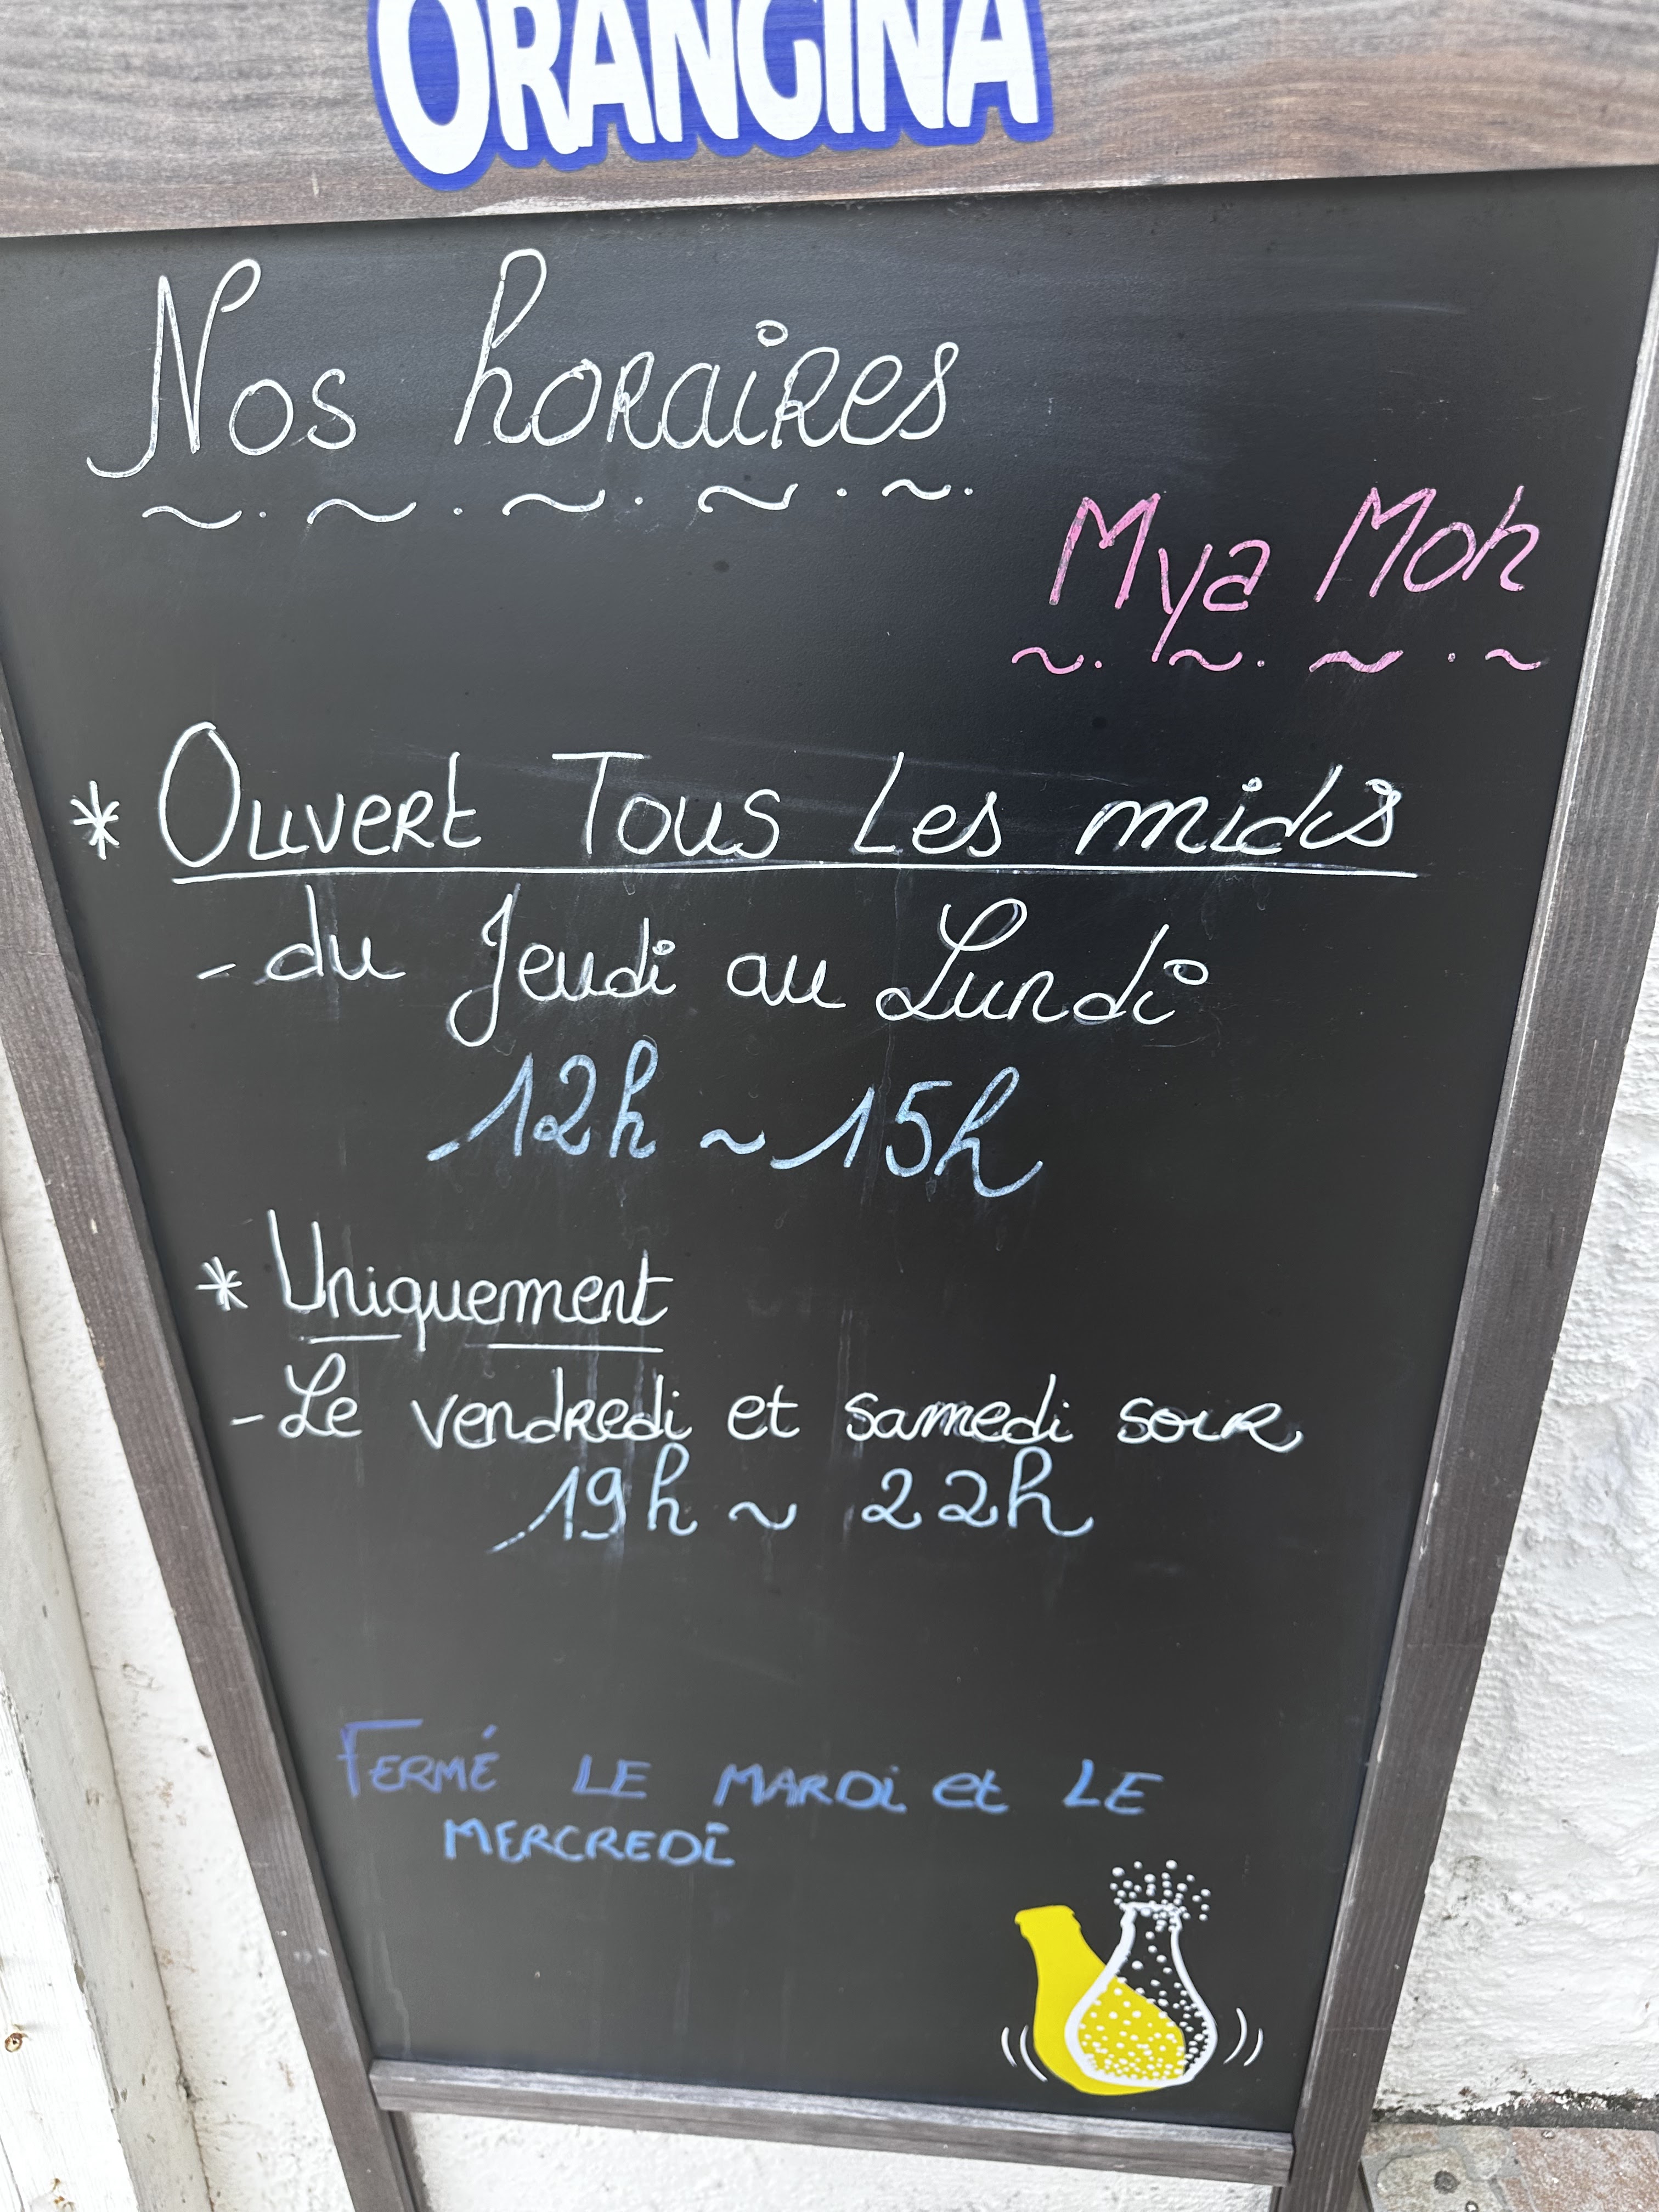 ORANGINA
Nos horaires
Mya Moh
* Ouvert Tous Les midis
- du Jeudi au Lundi
12h ~ 15h
* Uniquement
- Le vendredi et samedi soir
19h ~ 22h
FERMÉ LE MARDi et LE
MERCREDI